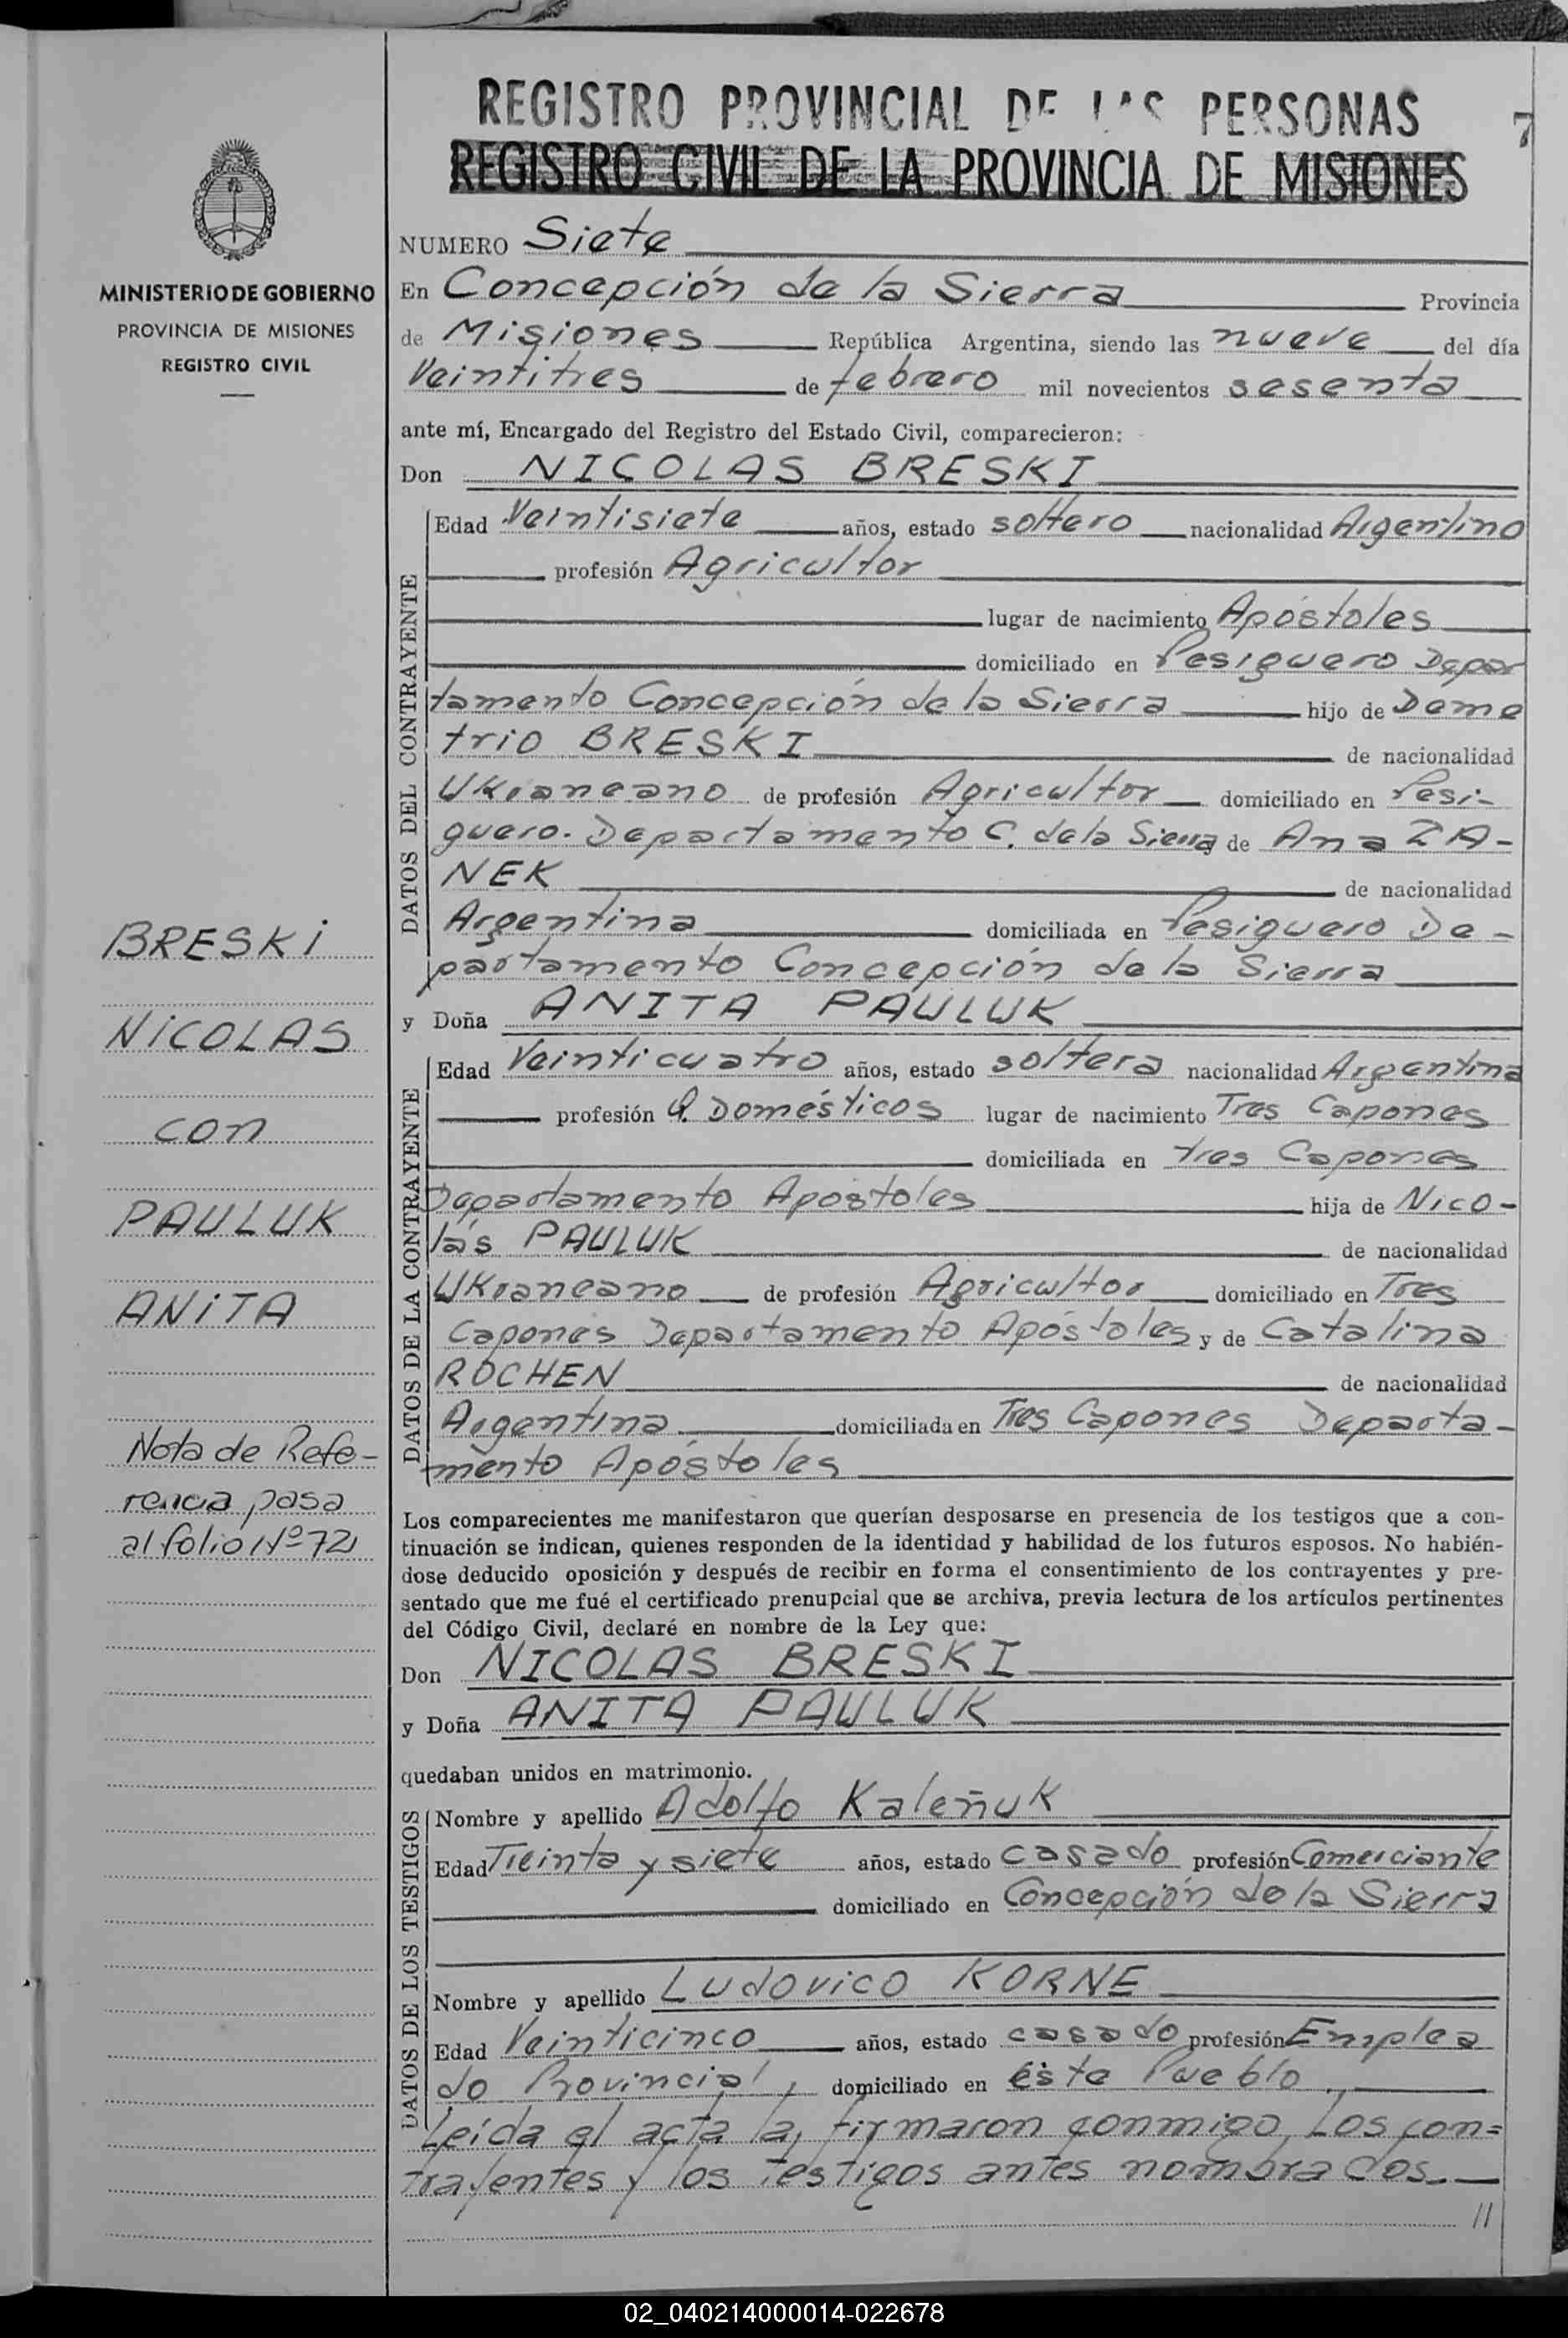 REGISTRO PROVINCIAL DE LAS PERSONAS
7
REGISTRO CIVIL DE LA PROVINCIA DE MISIONES
MINISTERIO DE GOBIERNO
PROVINCIA DE MISIONES
REGISTRO CIVIL
NUMERO Siete
En Concepción de la Sierra Provincia
de Misiones República Argentina, siendo las nueve del día
Veintitres de febrero mil novecientos sesenta
ante mí, Encargado del Registro del Estado Civil, comparecieron:
Don NICOLAS BRESKI
DATOS DEL CONTRAYENTE
Edad Veintisiete años, estado soltero nacionalidad Argentino
profesión Agricultor
lugar de nacimiento Apóstoles
domiciliado en Persiguero Depar
tamento Concepción de la Sierra hijo de Deme
trio BRESKI de nacionalidad
Ukraneano de profesión Agricultor domiciliado en Persi-
guero. Departamento C. de la Sierra de Ana ZA-
NEK de nacionalidad
Argentina domiciliada en Persiguero De-
partamento Concepción de la Sierra
y Doña ANITA PAULUK
DATOS DE LA CONTRAYENTE
Edad Veinticuatro años, estado soltera nacionalidad Argentina
profesión Q. Domésticos lugar de nacimiento Tres Capones
domiciliada en tres Capones
Departamento Apóstoles hija de Nico-
lás PAULUK de nacionalidad
Ukraneano de profesión Agricultor domiciliado en Tres
Capones Departamento Apóstoles y de Catalina
ROCHEN de nacionalidad
Argentina domiciliada en Tres Capones Departa-
mento Apóstoles
BRESKI
NICOLAS
con
PAULUK
ANITA
Nota de Refe-
rencia pasa
al folio Nº 72
Los comparecientes me manifestaron que querían desposarse en presencia de los testigos que a con-
tinuación se indican, quienes responden de la identidad y habilidad de los futuros esposos. No habién-
dose deducido oposición y después de recibir en forma el consentimiento de los contrayentes y pre-
sentado que me fué el certificado prenupcial que se archiva, previa lectura de los artículos pertinentes
del Código Civil, declaré en nombre de la Ley que:
Don NICOLAS BRESKI
y Doña ANITA PAULUK
quedaban unidos en matrimonio.
DATOS DE LOS TESTIGOS
Nombre y apellido Adolfo Kaleñuk
Edad Treinta y siete años, estado casado profesión Comerciante
domiciliado en Concepción de la Sierra
Nombre y apellido Ludovico KORNE
Edad Veinticinco años, estado casado profesión Emplea
do Provincial, domiciliado en éste Pueblo
Leída el acta la, firmaron conmigo, los con=
trayentes y los testigos antes nombrados.
//
02_040214000014-022678